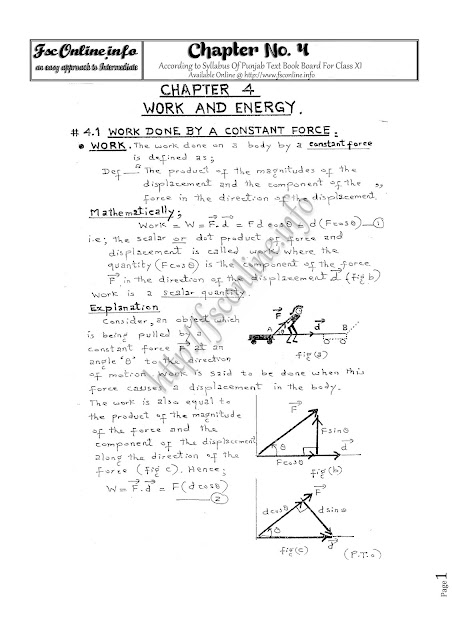 FscOnline.info
an easy approach to Intermediate
Chapter No. 4
According to Syllabus Of Punjab Text Book Board For Class XI
Available Online @ http://www.fsconline.info
CHAPTER 4
WORK AND ENERGY.
# 4.1 WORK DONE BY A CONSTANT FORCE:
• WORK. The work done on a body by a constant force
is defined as;
Def — "The product of the magnitudes of the
displacement and the component of the
force in the direction of the displacement"
Mathematically;
Work = W = F⃗.d⃗ = Fd cosθ = d(Fcosθ) — ①
i.e; the scalar or dot product of force and
displacement is called work, where the
quantity (Fcosθ) is the component of the force
F⃗ in the direction of the displacement d⃗ (fig b)
Work is a scalar quantity.
Explanation
Consider, an object which
is being pulled by a
constant force F⃗ at an
angle 'θ' to the direction
of motion. Work is said to be done when this
force causes a displacement in the body.
F⃗
A
θ
d⃗
B
fig(a)
The work is also equal to
the product of the magnitude
of the force and the
component of the displacement
along the direction of the
force (fig c). Hence;
W = F⃗.d⃗ = F(dcosθ)
②
F⃗
Fsinθ
θ
d⃗
Fcosθ
fig(b)
F⃗
dcosθ
dsinθ
θ
d⃗
fig(c)
(P.T.O)
http://fsconline.info
Page 1